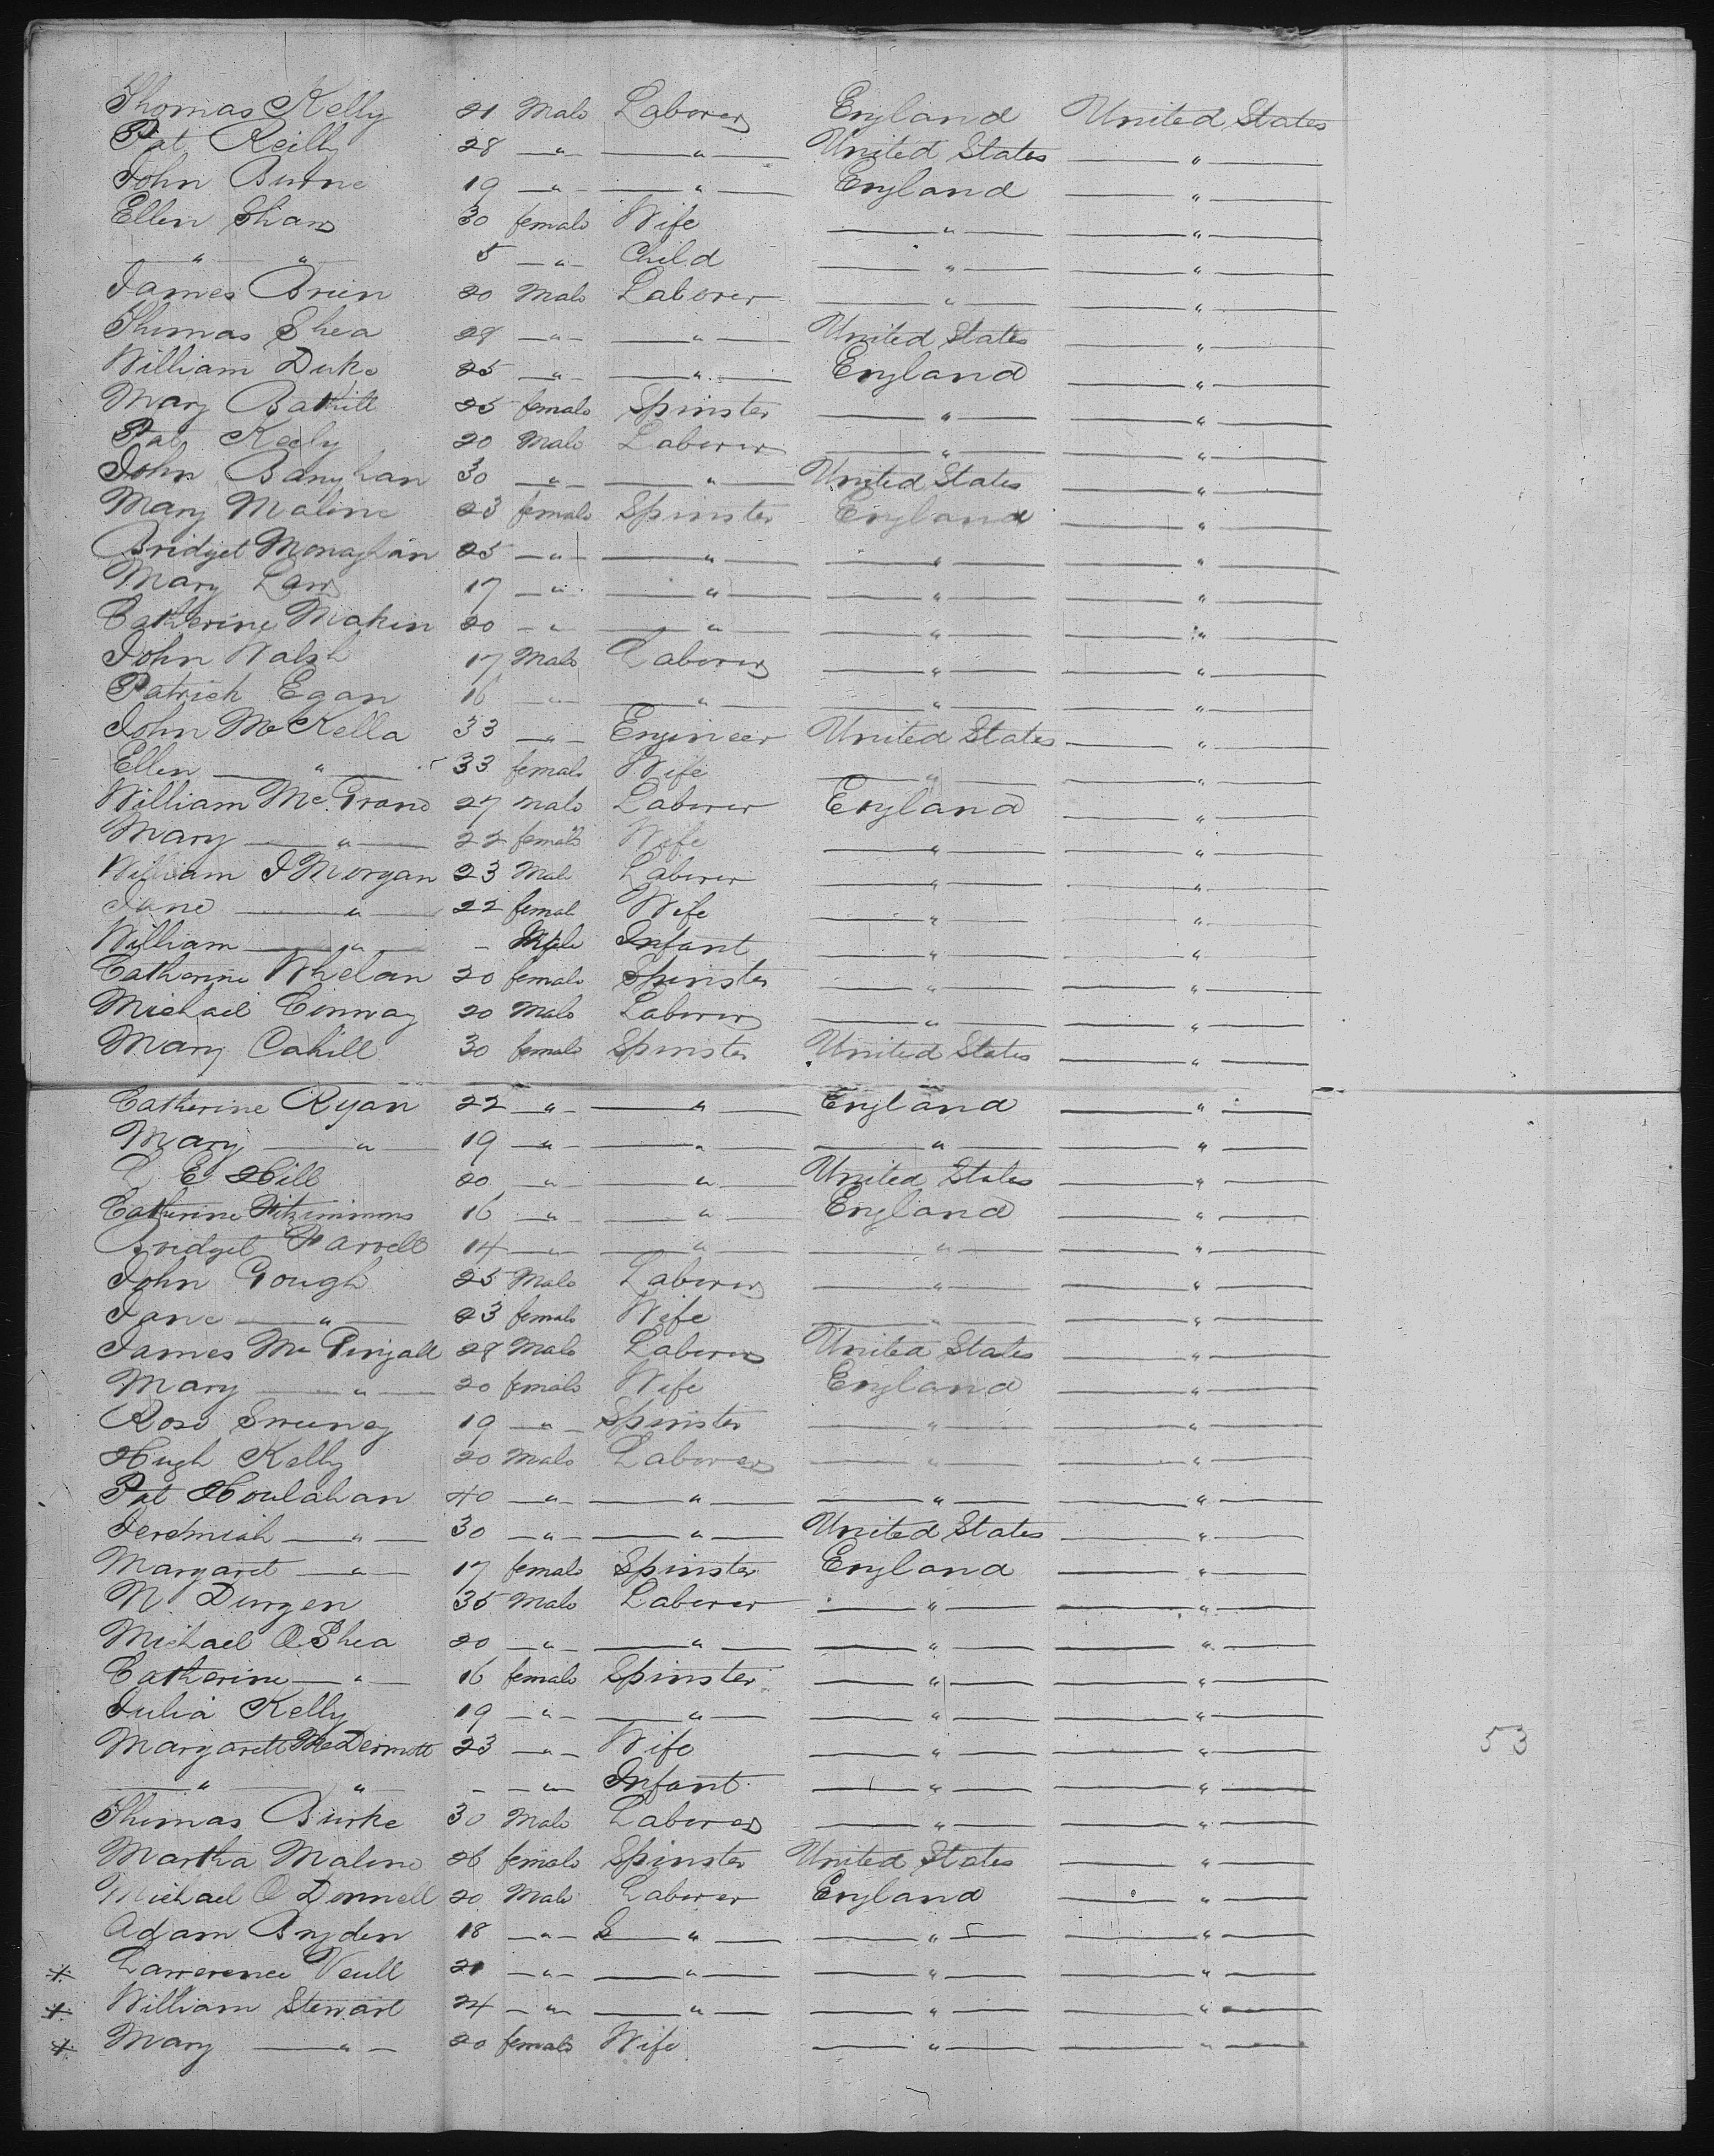 Thomas Kelly 21 Male Laborer England United States
Pat Reilly 28 " " United States "
John Burne 19 " " England "
Ellen Shaw 30 female Wife " "
" " 5 " Child " "
James Brien 20 Male Laborer " "
Thomas Shea 28 " " United States "
William Duke 25 " " England "
Mary 25 female Spinster " "
Pat Keely 20 Male Laborer " "
John 30 " " United States "
Mary Malone 23 female Spinster England "
Bridget Monaghan 25 " " " "
Mary Law 17 " " " "
Catherine Makin 20 " " " "
John Walsh 17 Male Laborer " "
Patrick Egan 16 " " " "
John McKella 33 " Engineer United States "
Ellen " 33 female Wife " "
William Mc Grane 27 Male Laborer England "
Mary " 22 female Wife " "
William J Morgan 23 Male Laborer " "
Jane " 22 female Wife " "
William " - Male Infant " "
Catherine Whelan 20 female Spinster " "
Michael Conway 20 Male Laborer " "
Mary Cahill 30 female Spinster United States "
Catherine Ryan 22 " " England "
Mary " 19 " " " "
L E Hill 20 " " United States "
Catherine Fitzimmons 16 " " England "
Bridget Farrell 14 " " " "
John Gough 25 Male Laborer " "
Jane " 23 female Wife " "
James Mc 28 Male Laborer United States "
Mary " 20 female Wife England "
Rose Sweeney 19 " Spinster " "
Hugh Kelly 20 Male Laborer " "
Pat Houlahan 40 " " " "
Jeremiah " 30 " " United States "
Margaret " 17 female Spinster England "
N Durgen 35 Male Laborer " "
Michael O Shea 20 " " " "
Catherine " 16 female Spinster " "
Julia Kelly 19 " " " "
Margarett McDermott 23 " Wife " " 53
" " - " Infant " "
Thomas Burke 30 Male Laborer " "
Martha Malone 26 female Spinster United States "
Michael O Donnell 20 Male Laborer England "
Adam Bryden 18 " " " "
* Lawrence 21 " " " "
* William Stewart 24 " " " "
* Mary " 20 female Wife " "